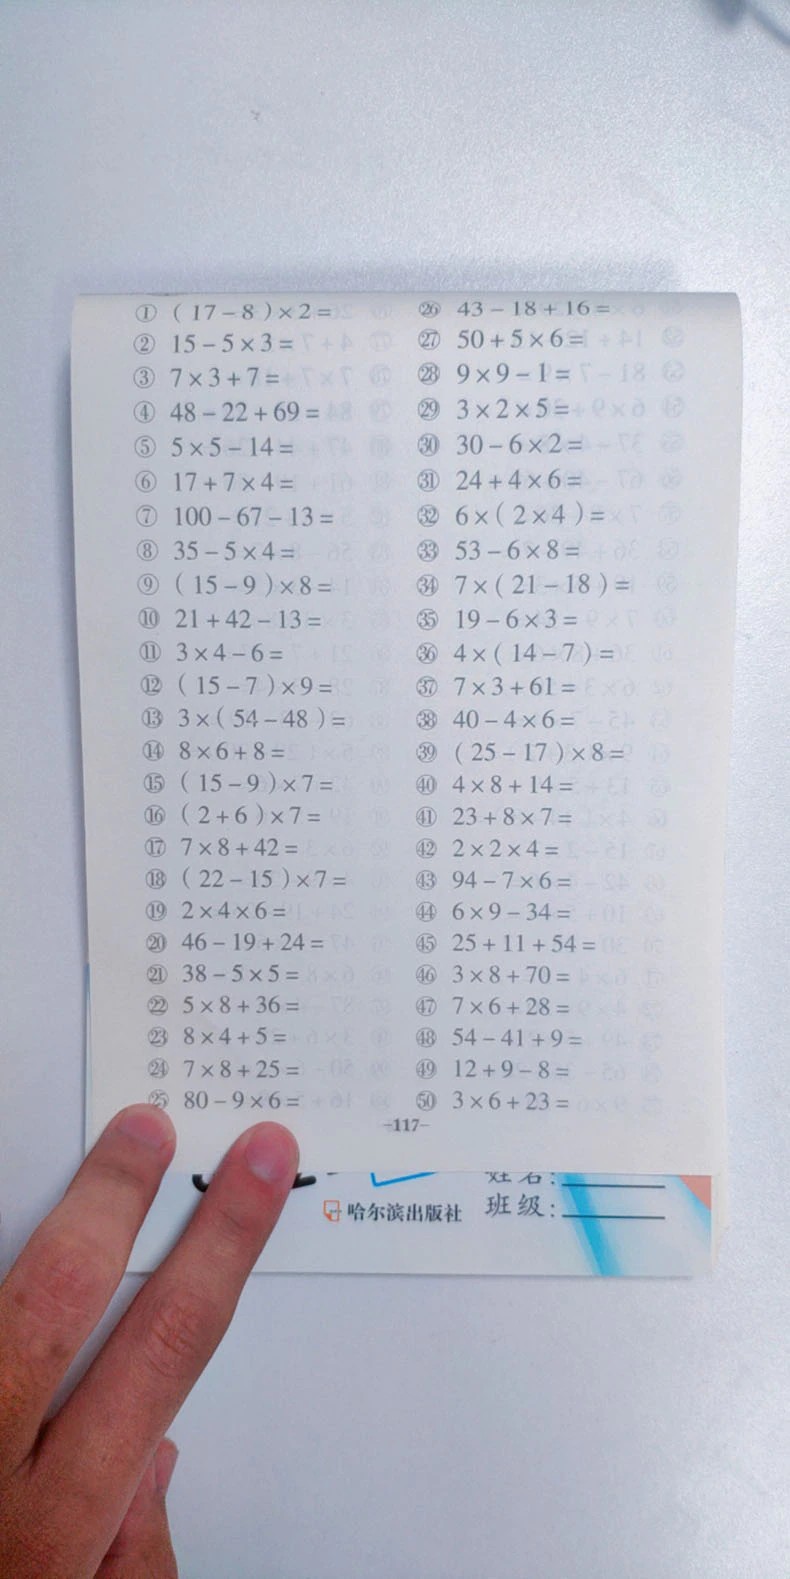 ① ( 17 - 8 ) × 2 =
② 15 - 5 × 3 =
③ 7 × 3 + 7 =
④ 48 - 22 + 69 =
⑤ 5 × 5 - 14 =
⑥ 17 + 7 × 4 =
⑦ 100 - 67 - 13 =
⑧ 35 - 5 × 4 =
⑨ ( 15 - 9 ) × 8 =
⑩ 21 + 42 - 13 =
⑪ 3 × 4 - 6 =
⑫ ( 15 - 7 ) × 9 =
⑬ 3 × ( 54 - 48 ) =
⑭ 8 × 6 + 8 =
⑮ ( 15 - 9 ) × 7 =
⑯ ( 2 + 6 ) × 7 =
⑰ 7 × 8 + 42 =
⑱ ( 22 - 15 ) × 7 =
⑲ 2 × 4 × 6 =
⑳ 46 - 19 + 24 =
㉑ 38 - 5 × 5 =
㉒ 5 × 8 + 36 =
㉓ 8 × 4 + 5 =
㉔ 7 × 8 + 25 =
㉕ 80 - 9 × 6 =
㉖ 43 - 18 + 16 =
㉗ 50 + 5 × 6 =
㉘ 9 × 9 - 1 =
㉙ 3 × 2 × 5 =
㉚ 30 - 6 × 2 =
㉛ 24 + 4 × 6 =
㉜ 6 × ( 2 × 4 ) =
㉝ 53 - 6 × 8 =
㉞ 7 × ( 21 - 18 ) =
㉟ 19 - 6 × 3 =
㊱ 4 × ( 14 - 7 ) =
㊲ 7 × 3 + 61 =
㊳ 40 - 4 × 6 =
㊴ ( 25 - 17 ) × 8 =
㊵ 4 × 8 + 14 =
㊶ 23 + 8 × 7 =
㊷ 2 × 2 × 4 =
㊸ 94 - 7 × 6 =
㊹ 6 × 9 - 34 =
㊺ 25 + 11 + 54 =
㊻ 3 × 8 + 70 =
㊼ 7 × 6 + 28 =
㊽ 54 - 41 + 9 =
㊾ 12 + 9 - 8 =
㊿ 3 × 6 + 23 =
-117-
姓名:
哈尔滨出版社 班级: